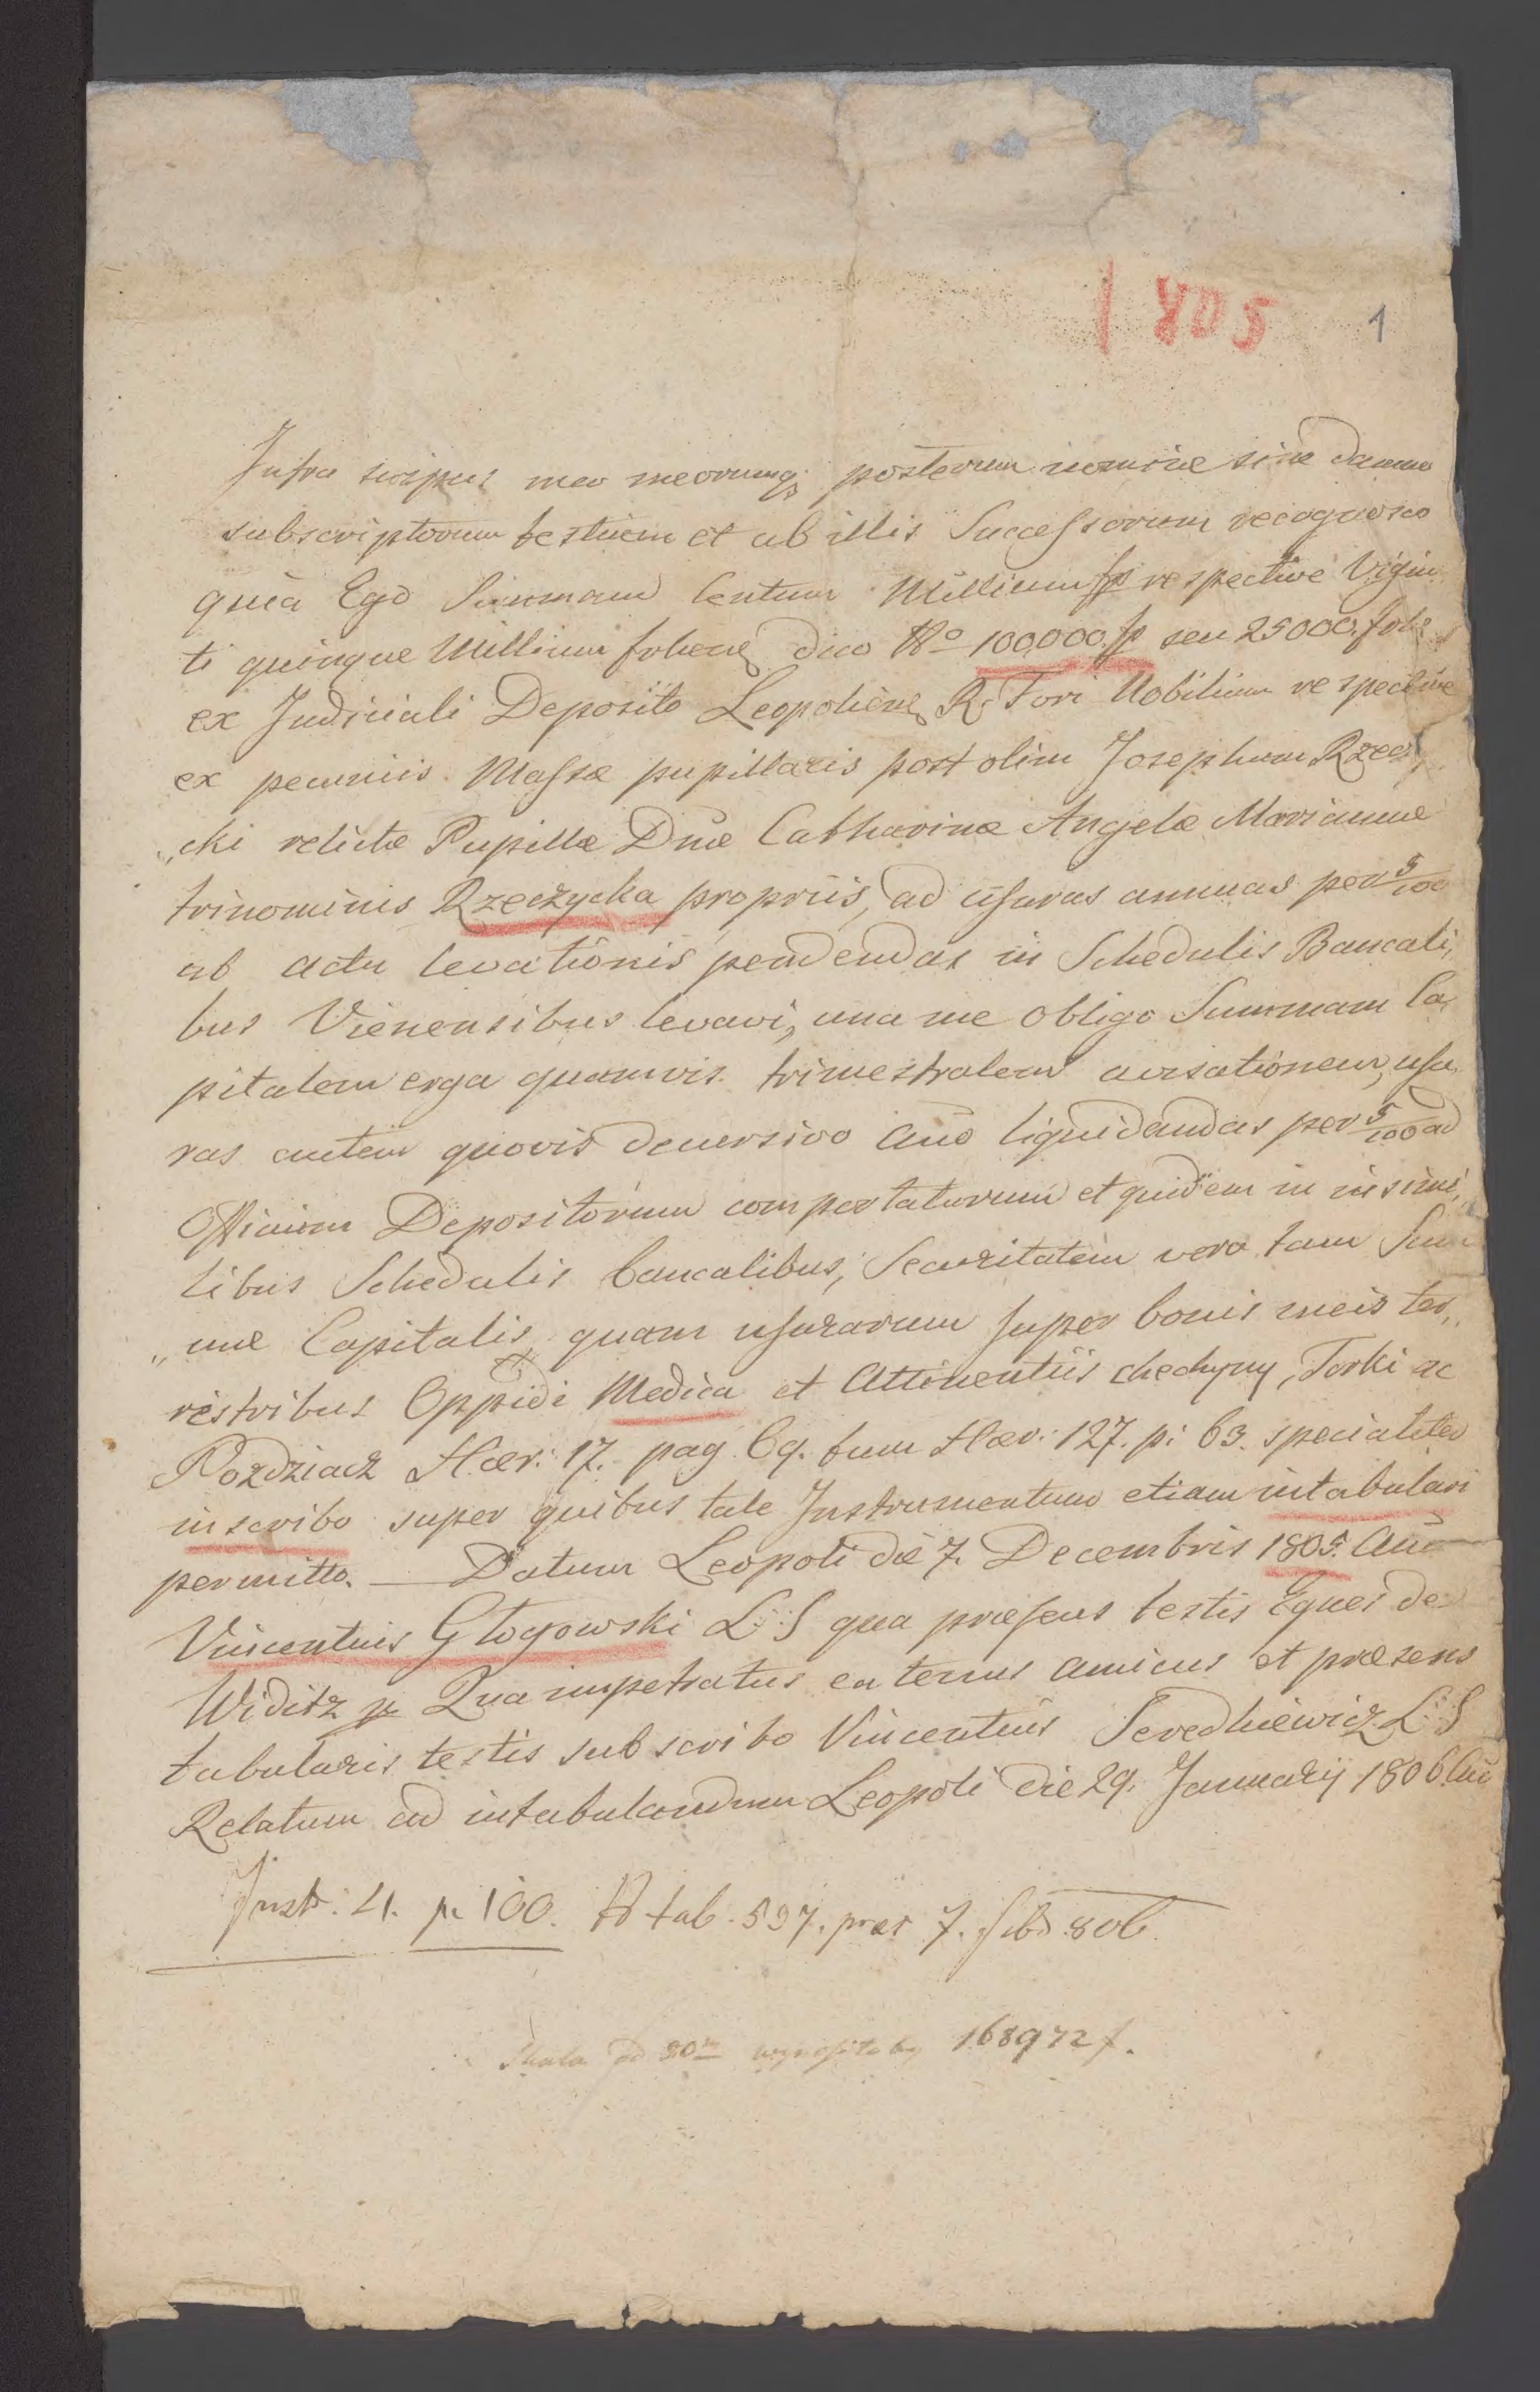 1805 1
Infra scriptus meo meorumq; posterum nomine sine damno
subscriptorum testium et ab illis Successorum recognosco
quia Ego Summam Centum Millium fp respective Vigin
ti quinque Millium frhen dico No 100,000 fp seu 25000. frhe
ex Judiciali Deposito Leopolien R. Fori Nobilium respective
ex pecuniis Massæ pupillaris post olim Josephum Rzeczy
„cki relictæ Pupillæ Dnæ Catharinæ Angelæ Mariannæ
trinominis Rzeczycka propriis, ad usuras annuas per 5/100
ab actu levationis pendendas in Schedulis Bancali,
bus Vienensibus levavi, una me obligo Summam Ca,
pitalem erga quamvis trimestralem avisationem, usu,
ras autem quovis decursivo Año liquidandas per 5/100 ad
Officium Depositorum comportaturum et quidem in insimi,
libus Schedulis bancalibus, Securitatem vero tam Sum
„mæ Capitalis quam usurarum super bonis meis ter,,
restribus Oppidi Medica et Attinentiis chechyny, Torki ac
Pozdziacz Hær: 17. pag 69. tum Hær: 127. p: 63. specialiter
inscribo super quibus tale Instrumentum etiam intabulari
permitto. — Datum Leopoli die 7. Decembris 1805. Año
Vincentius Głogowski L S qua præsens testis Eques de
Widitz p Qua impetratus eatenus amicus et præsens
tabularis testis subscribo Vincentius Seredkiewicz L S
Relatum ad intabulandum Leopoli die 29. Januarij 1806 Año
Instr: 41. p. 100. No tab. 597. præs 7. feb. 806.
Skala od 20 wynosiłaby 168972 f.